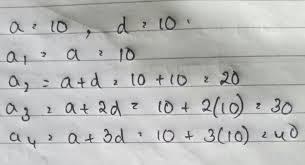 a = 10 , d = 10
a₁ = a = 10
a₂ = a+d = 10 + 10 = 20
a₃ = a + 2d = 10 + 2(10) = 30
a₄ = a + 3d = 10 + 3(10) = 40